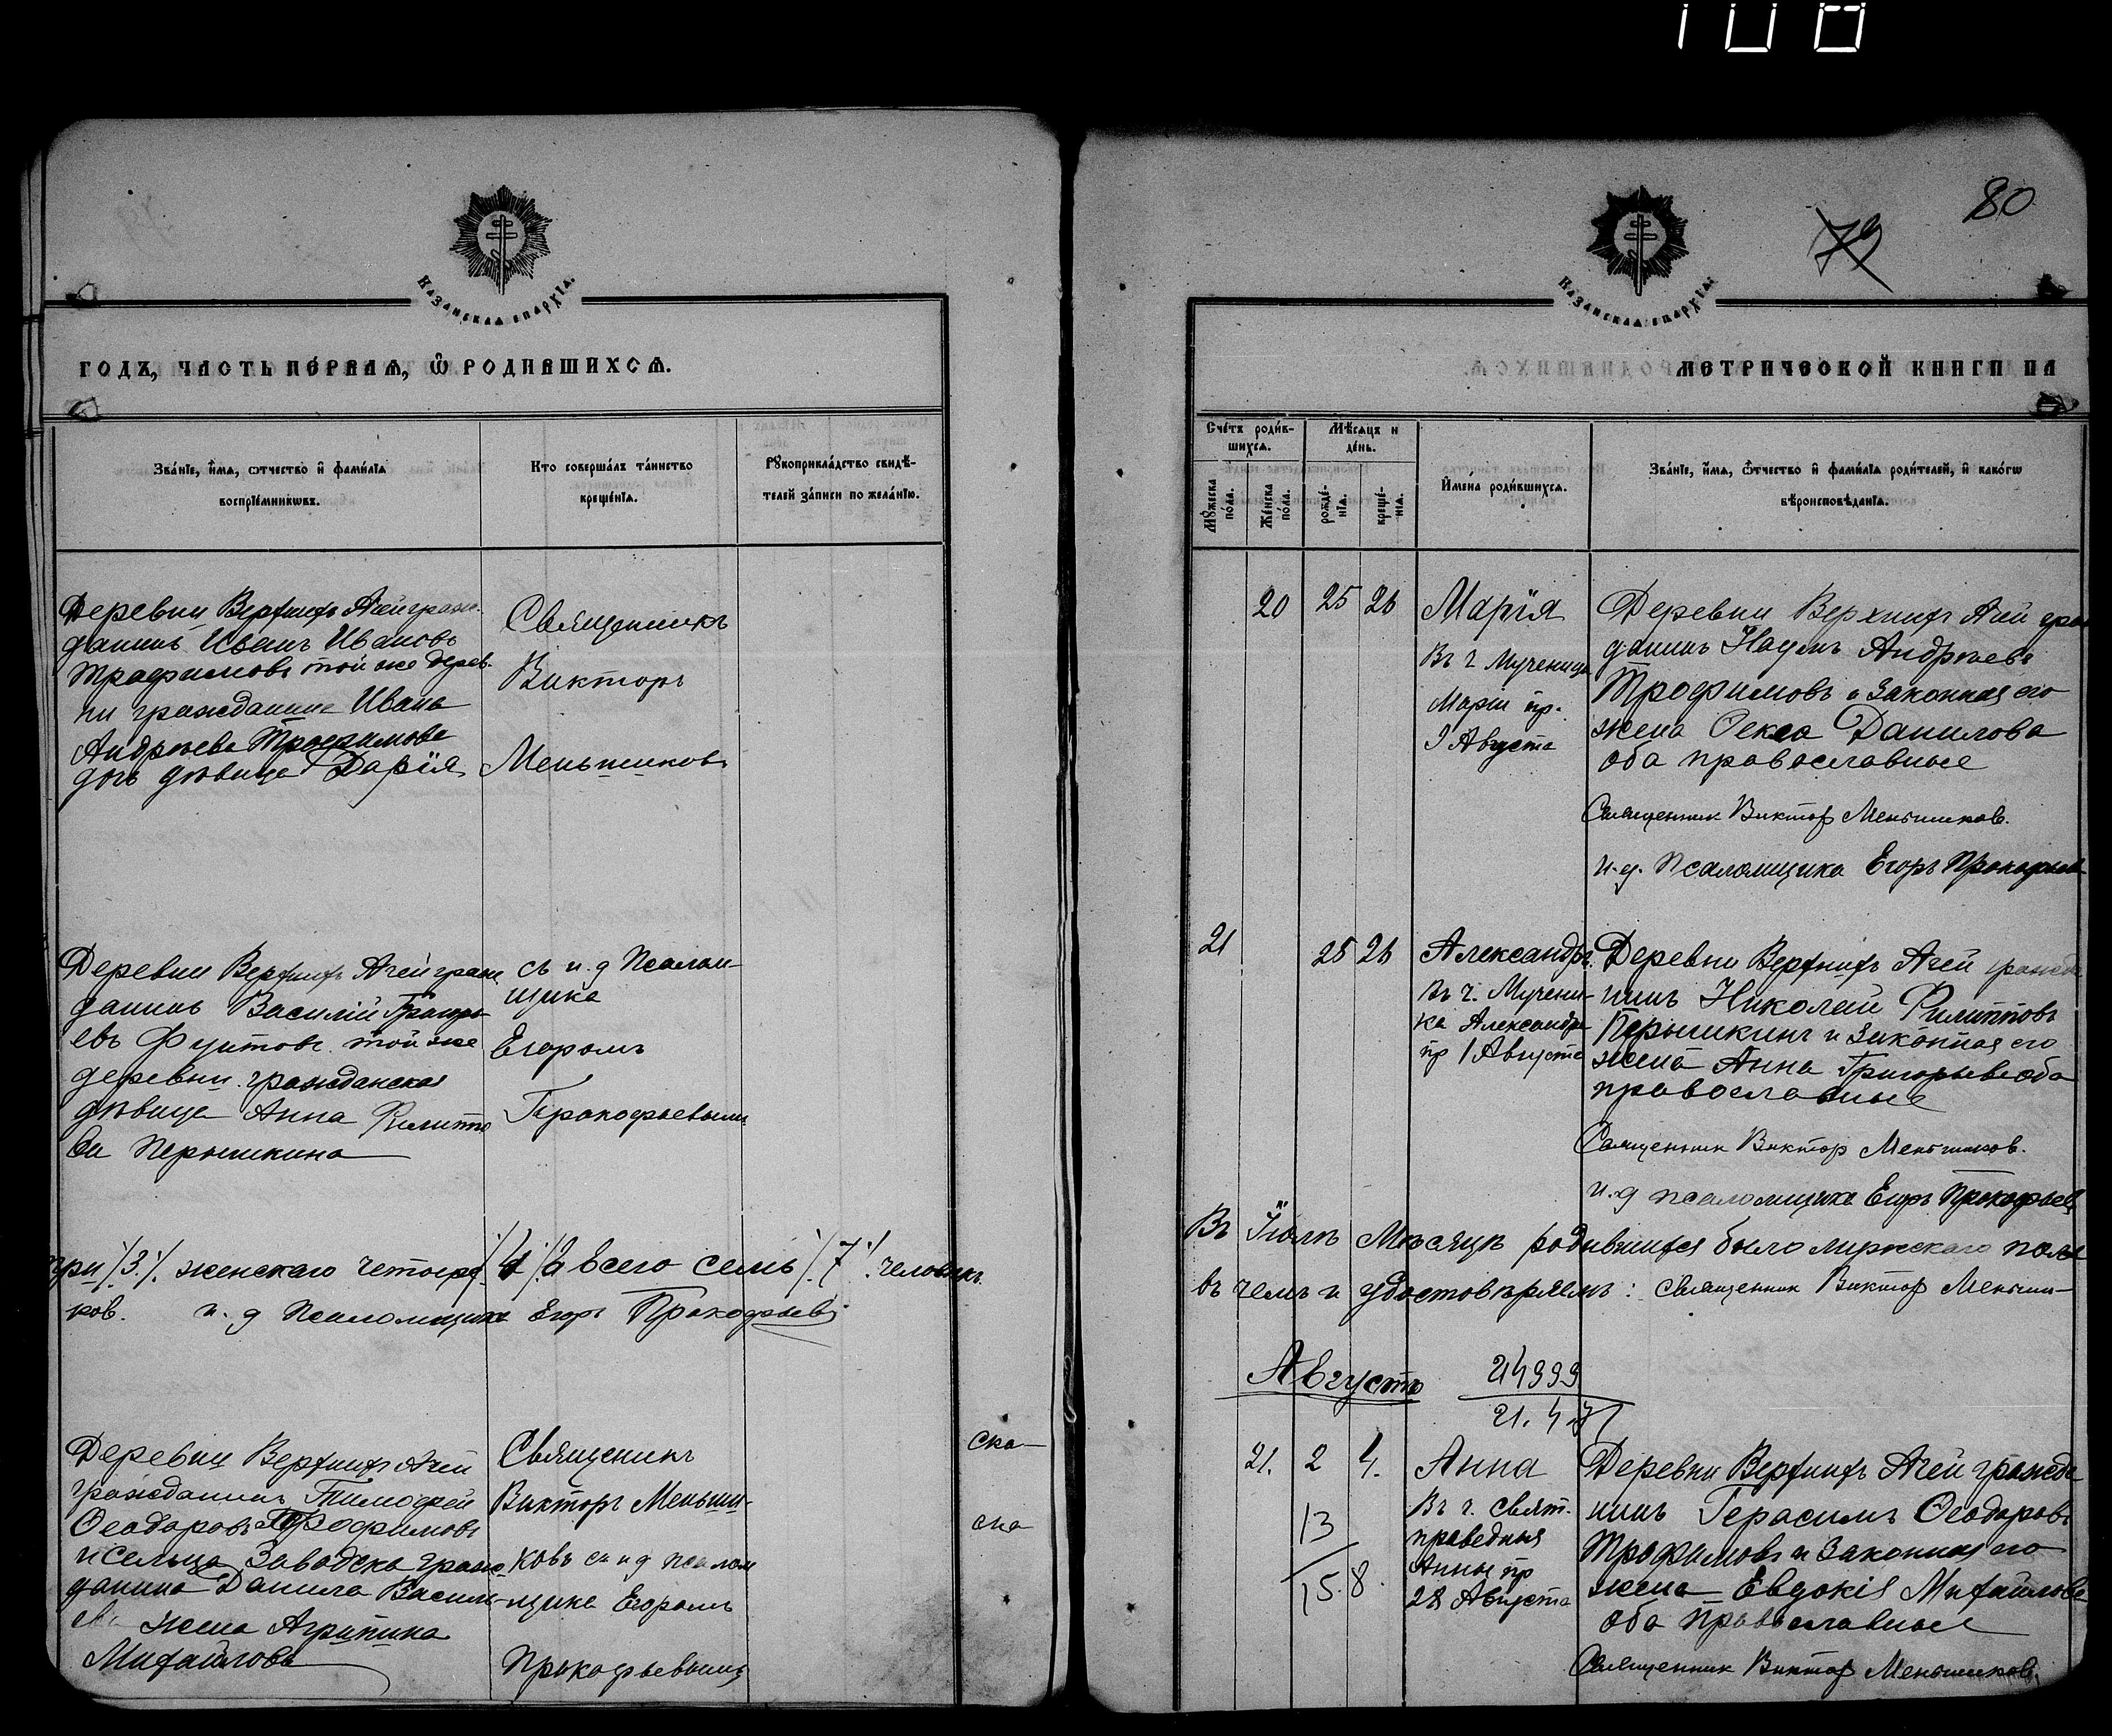 108
Казанская епархія.
годъ, часть первая, ѡ родившихся.
Званіе, имя, отчество и фамилія
воспріемниковъ.
Кто совершалъ таинство
крещенія.
Рукоприкладство свидѣ-
телей записи по желанію.
Деревни Верхнихъ Ачей граж-
данинъ Иванъ Ивановъ
Трофимовъ той же дерев-
ни гражданина Ивана
Андреева Трофимова
дочь дѣвица Дарія
Священникъ
Викторъ
Меньшиковъ
Деревни Верхнихъ Ачей граж
данинъ Василій Григорь-
евъ той же
деревни гражданская
дѣвица Анна Филиппо
ва Перышкина
съ и.д Псалом-
щика
Егоромъ
Прокофьевымъ
три /3/. женскаго четыре /4/. а всего семь /7/. человѣкъ.
ков. и. д Псаломщика Егоръ Прокофьевъ
Деревни Верхнихъ Ачей
гражданинъ Тимофей
Ѳеодоровъ Трофимовъ
и сельца Заводска граж-
данина Данила Василь-
жена Агрипина
Михайлова
Священникъ
Викторъ Меньши-
ковъ съ и д псалом
щика Егоромъ
Прокофьевымъ
ска-
ска
80
79
Казанская епархія.
метрической книги на
Счетъ родив-
шихся.
Мѣсяцъ и
день.
Мужеска
пола.
Женска
пола.
рожде-
нія.
креще-
нія.
Имена родившихся.
Званіе, имя, отчество и фамилія родителей, и какогѡ
вѣроисповѣданія.
20 25 26 Марія
Въ ч. Мученицы
Маріи пр.
9 Августа
Деревни Верхнихъ Ачей граж
данинъ Наумъ Андреевъ
Трофимовъ и законная его
жена Данилова
оба православные
Священник Виктор Меньшиков.
И.д. Псаломщика Егоръ Прокофьев
21 25 26 Александръ
Въ ч. Мучени-
ка Александра
пр 1 Августа
Деревни Верхнихъ Ачей гражда
нинъ Николай Филипповъ
Перышкинъ и законная его
жена Анна Григорьева оба
православные
Священник Виктор Меньшиков.
и.д псаломщика Егоръ Прокофьев
Въ Іюлѣ Мѣсяцѣ родившихся было мужскаго пола
въ чемъ и удостовѣряемъ: священник Виктор Меньши-
Августъ
24999
21. 4.
21. 2 4. Анна
13
15. 8.
Въ ч. свят.
праведныя
Анны пр
28 Августа
Деревни Верхнихъ Ачей гражда
нинъ Герасимъ Ѳеодоровъ
Трофимовъ и законная его
жена Евдокія Михайлова
оба Православные
Священник Виктор Меньшиков.